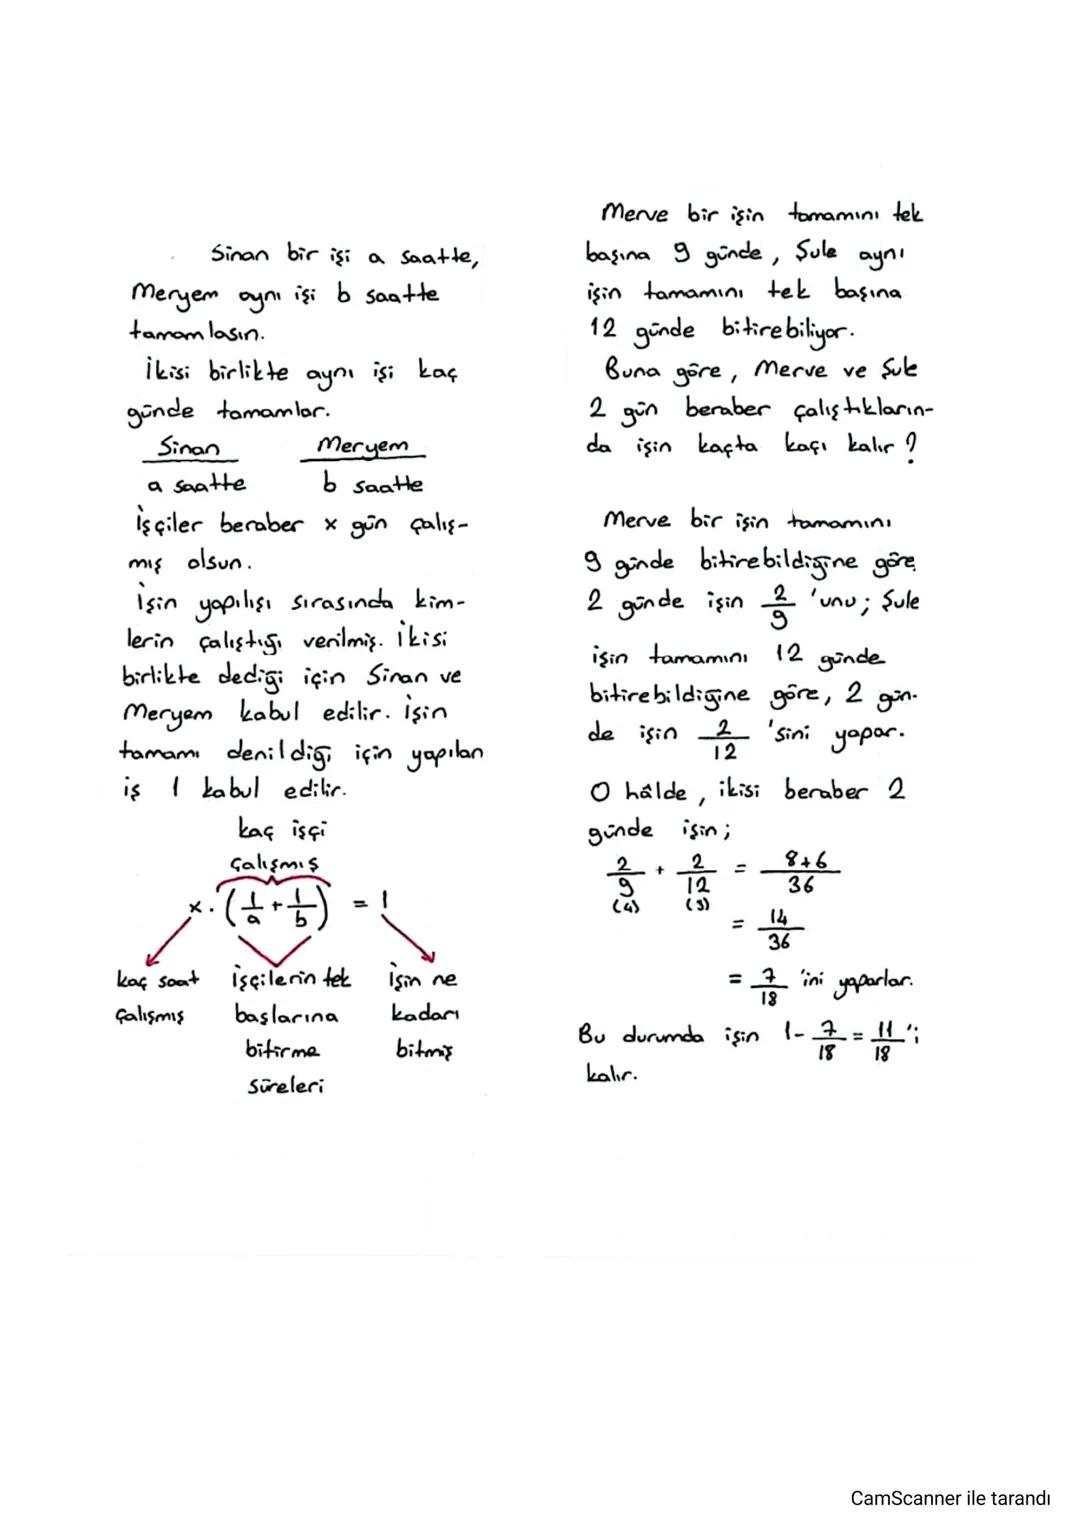 Sinan bir işi a saatte,
Meryem aynı işi b saatte
tamamlasın.
İkisi birlikte aynı işi kaç
günde tamamlar.
Sinan Meryem
a saatte b saatte
İşçiler beraber x gün çalış-
mış olsun.
İşin yapılışı sırasında kim-
lerin çalıştığı verilmiş. İkisi
birlikte dediği için Sinan ve
Meryem kabul edilir. İşin
tamamı denildiği için yapılan
iş 1 kabul edilir.
kaç işçi
çalışmış
x. (1/a + 1/b) = 1
kaç saat işçilerin tek işin ne
çalışmış başlarına kadarı
bitirme bitmiş
süreleri
Merve bir işin tamamını tek
başına 9 günde, Şule aynı
işin tamamını tek başına
12 günde bitirebiliyor.
Buna göre, Merve ve Şule
2 gün beraber çalıştıkların-
da işin kaçta kaçı kalır?
Merve bir işin tamamını
9 günde bitirebildiğine göre,
2 günde işin 2/9 'unu; Şule
işin tamamını 12 günde
bitirebildiğine göre, 2 gün-
de işin 2/12 'sini yapar.
O hâlde, ikisi beraber 2
günde işin;
2/9 + 2/12 = 8+6/36
(4) (3)
= 14/36
= 7/18 'ini yaparlar.
Bu durumda işin 1 - 7/18 = 11/18 'i
kalır.
CamScanner ile tarandı